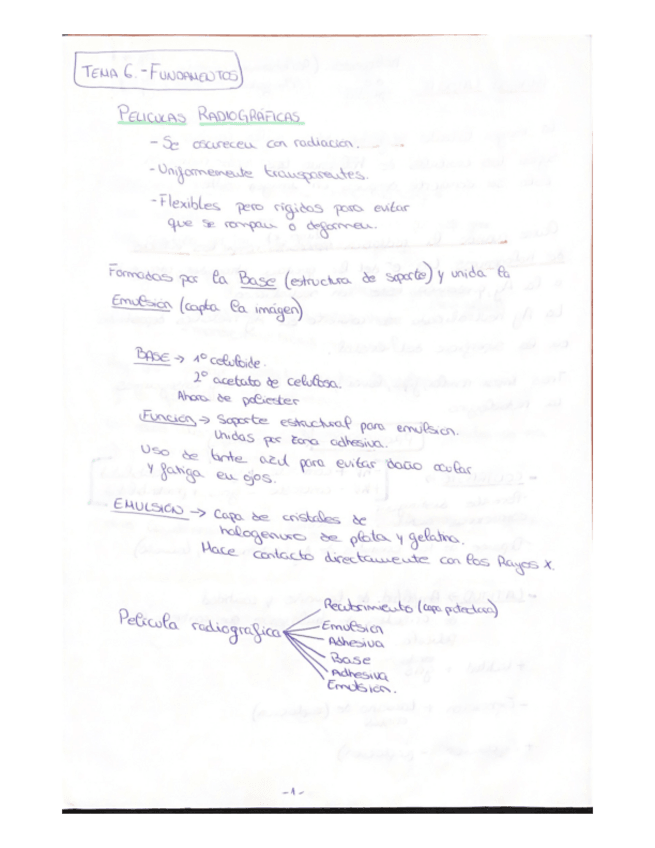 TEMA 6.-FUNDAMENTOS
PELICULAS RADIOGRÁFICAS
- Se oscurecen con radiación.
- Uniformemente transparentes.
- Flexibles pero rígidas para evitar
que se rompan o deformen.
Formadas por la Base (estructura de soporte) y unida la
Emulsión (capta la imágen)
BASE → 1º celuloide.
2º acetato de celulosa.
Ahora de poliester
Función → Soporte estructural para emulsion.
Unidas por zona adhesiva.
Uso de tinte azul para evitar daño ocular
y fatiga en ojos.
EMULSIÓN → Capa de cristales de
halogenuro de plata y gelatina.
Hace contacto directamente con los Rayos X.
Película radiográfica
Recubrimiento (capa protectora)
Emulsión
Adhesiva
Base
Adhesiva
Emulsión.
-1-